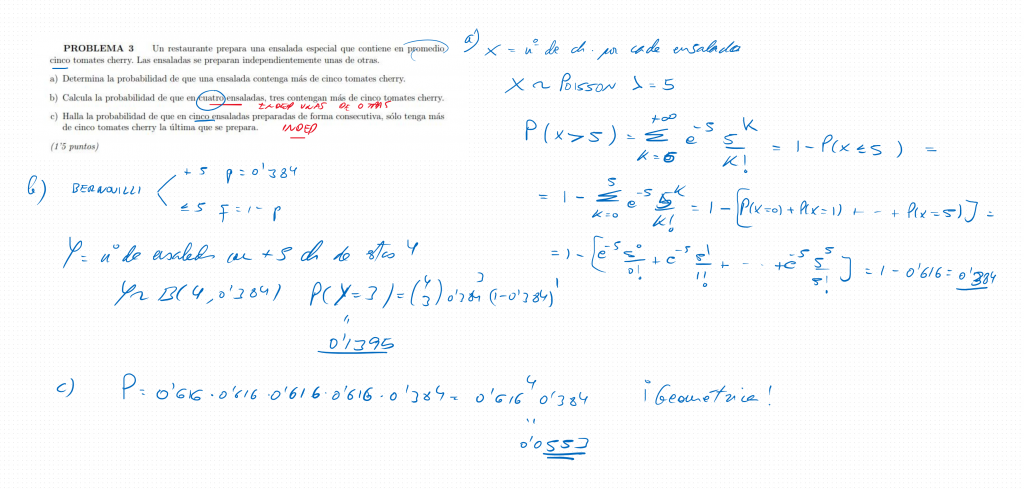 PROBLEMA 3 Un restaurante prepara una ensalada especial que contiene en promedio,
cinco tomates cherry. Las ensaladas se preparan independientemente unas de otras.
a) Determina la probabilidad de que una ensalada contenga más de cinco tomates cherry.
b) Calcula la probabilidad de que en cuatro ensaladas, tres contengan más de cinco tomates cherry.
INDEP UNAS DE OTRAS
c) Halla la probabilidad de que en cinco ensaladas preparadas de forma consecutiva, sólo tenga más
de cinco tomates cherry la última que se prepara. INDEP
(1'5 puntos)
a) X = nº de ch. por cada ensalada
X ~ POISSON λ = 5
P(X>5) = Σ_{k=6}^{+∞} e^{-5} 5^k/k! = 1 - P(X≤5) =
= 1 - Σ_{k=0}^{5} e^{-5} 5^k/k! = 1 - [P(X=0) + P(X=1) + ··· + P(X=5)] =
= 1 - [e^{-5} 5^0/0! + e^{-5} 5^1/1! + ··· + e^{-5} 5^5/5!] = 1 - 0'616 = 0'384
b) BERNOUILLI
+5 p = 0'384
≤5 F = 1 - p
Y = nº de ensaladas con +5 ch de estas 4
Y ~ B(4, 0'384) P(Y=3) = (4 3) 0'384^3 (1-0'384)^1
"
0'1395
c) P = 0'616 · 0'616 · 0'616 · 0'616 · 0'384 = 0'616^4 0'384 ¡Geométrica!
"
0'0553